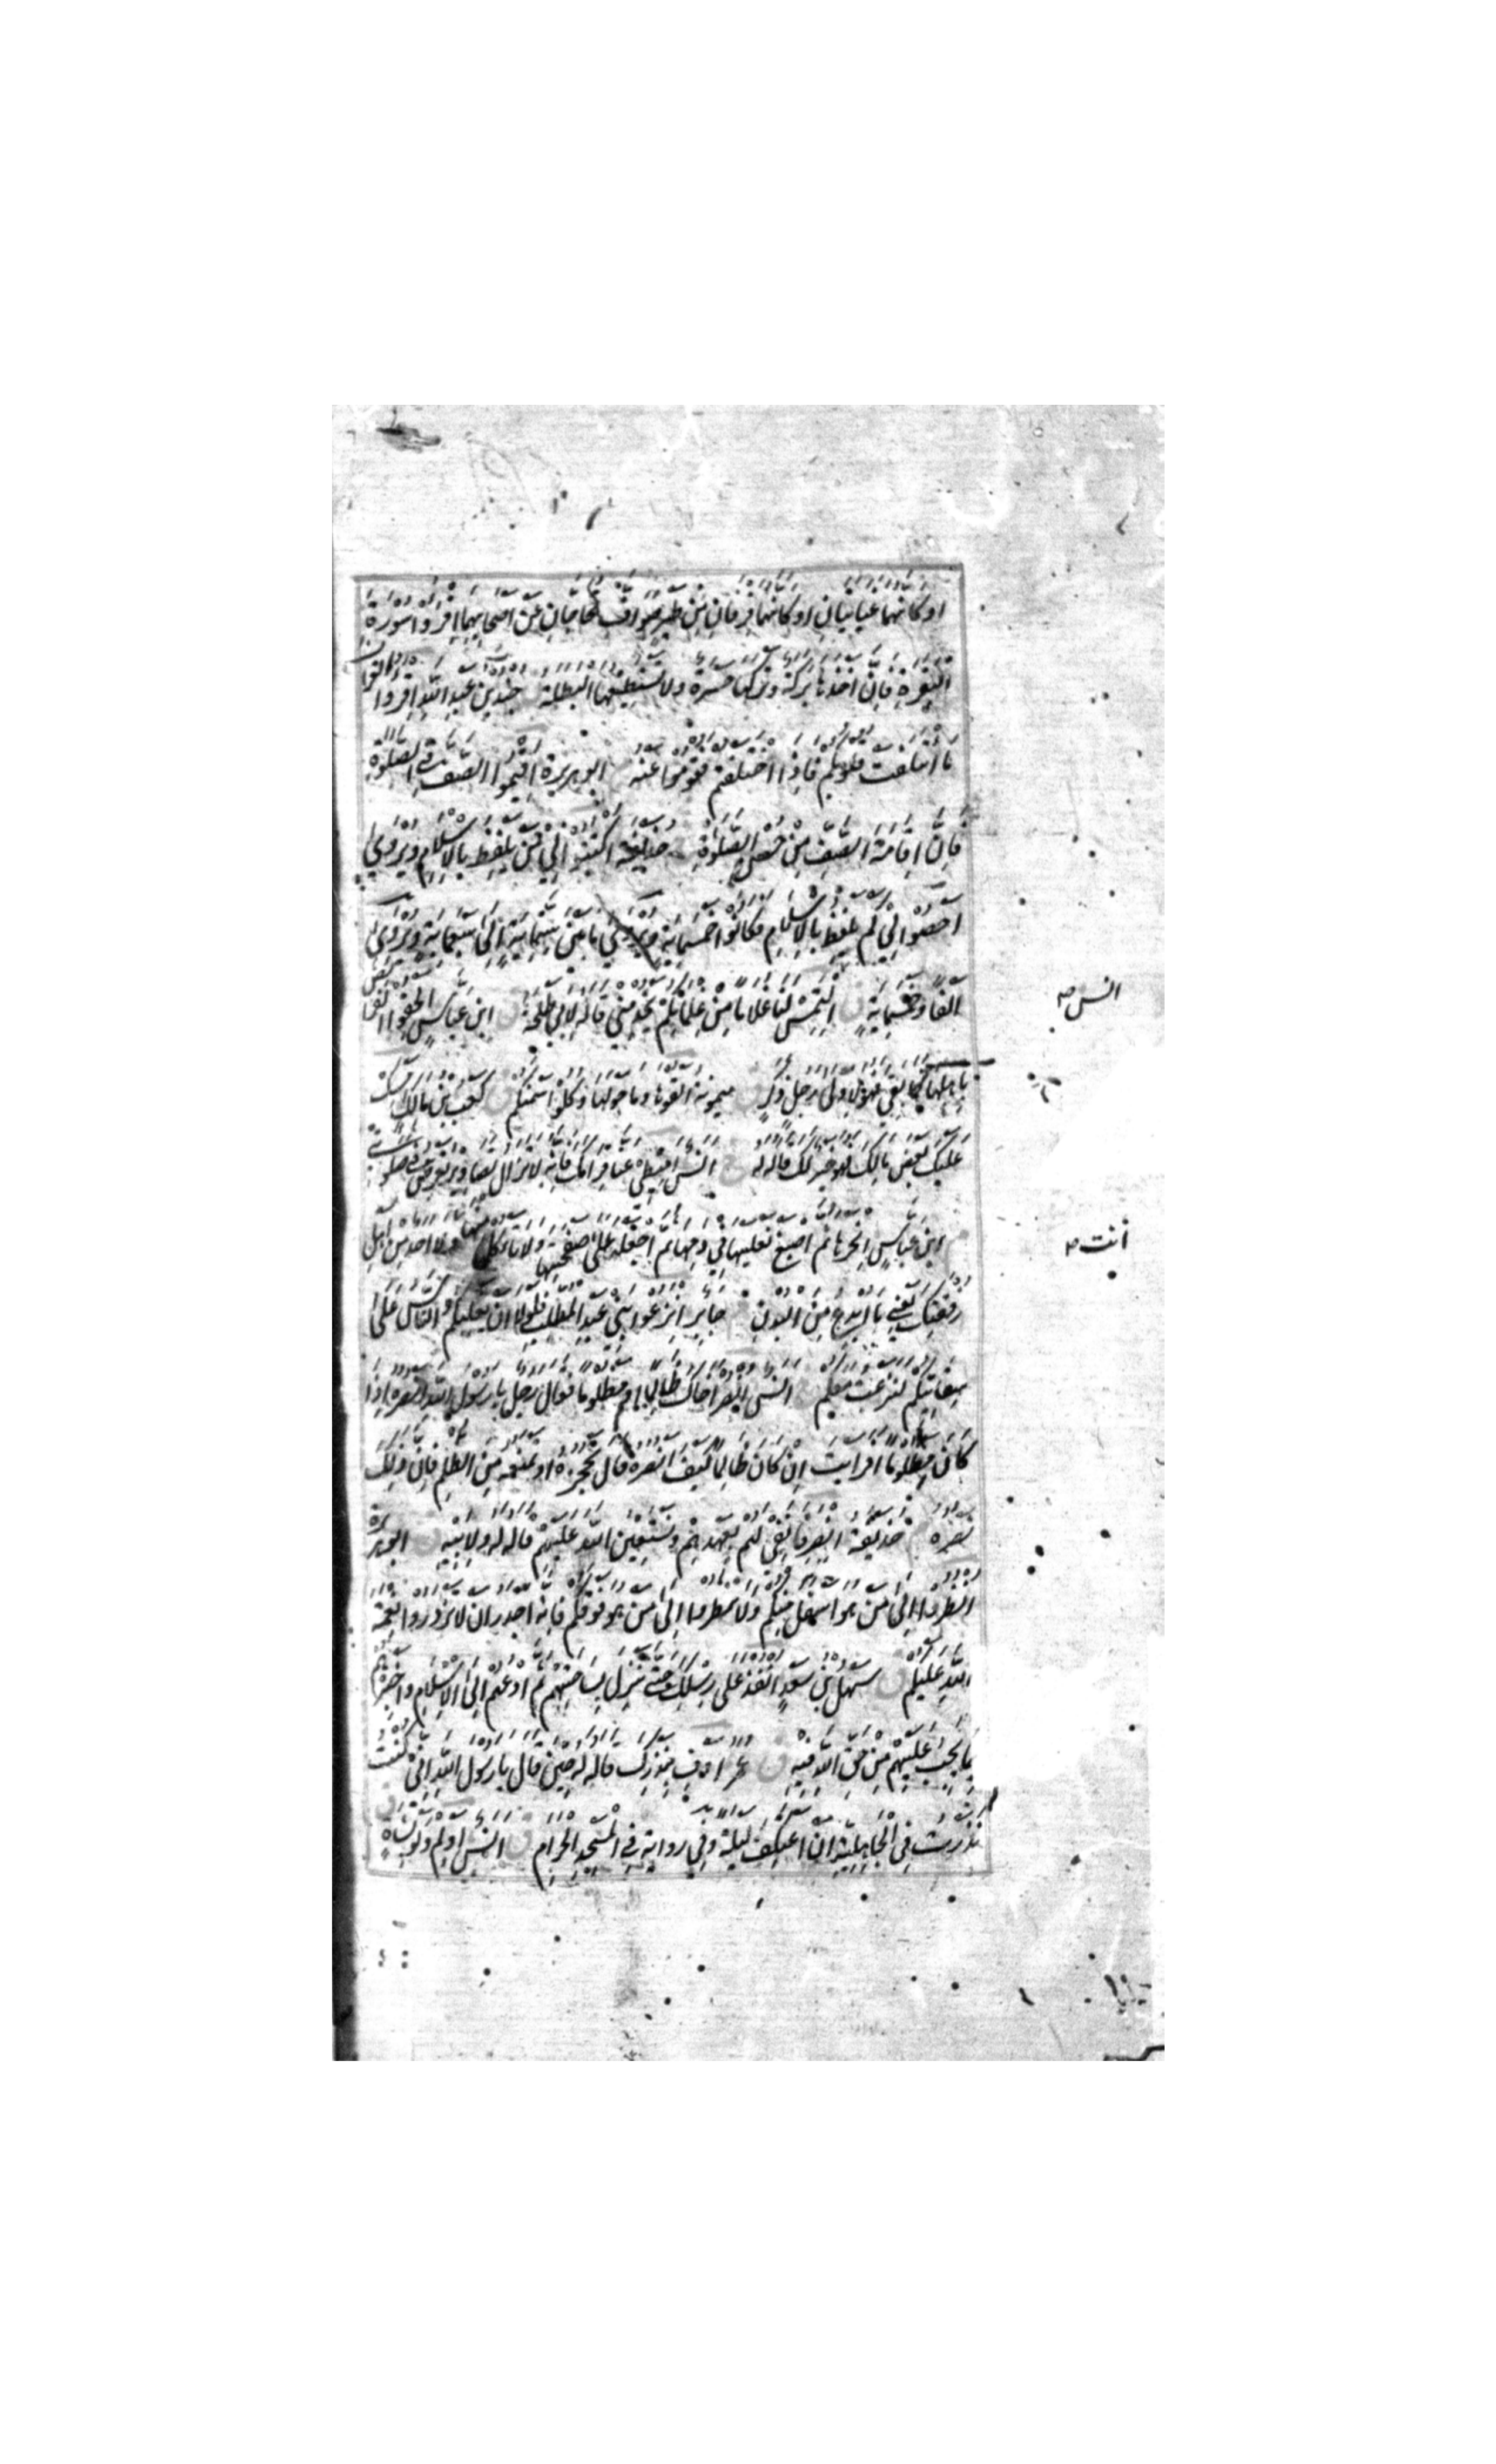 او كانهما غيايتان او كانهما فرقان من طير صواف تحاجان عن اصحابهما اقرؤا سورة
البقرة فان اخذها بركة وتركها حسرة ولا تستطيعها البطلة جندب بن عبد الله اقرؤا القرآن
ما ائتلفت قلوبكم فاذا اختلفتم فقوموا عنه ابو هريرة اقيموا الصف في الصلوة
فان اقامة الصف من حسن الصلوة حذيفة اكتبوا لي من تلفظ بالاسلام ويروى
احصوا لي كم تلفظ بالاسلام فكانوا خمسمائة ويروى ما بين ستمائة الى سبعمائة ويروى
الفا وخمسمائة ق التمس لنا غلاما من غلمانكم يخدمني قاله لابي طلحة ق ابن عباس الحقوا الفرائض
باهلها فما بقي فهو لاولى رجل ذكر ميمونة القوها وما حولها وكلوا سمنكم ق كعب بن مالك امسك
عليك بعض مالك فهو خير لك قاله له خ انس اميطي عنا قرامك فانه لا تزال تصاويره تعرض في صلوتي
م ابن عباس انحرها ثم اصبغ نعليها في دمها ثم اجعله على صفحتها ولا تأكل منها ولا احد من اهل
رفقتك يعني ما ابدع من البدن جابر انزعوا بني عبد المطلب فلولا ان يغلبكم الناس على
سقايتكم لنزعت معكم خ انس انصر اخاك ظالما او مظلوما فقال رجل يا رسول الله انصره اذا
كان مظلوما افرايت ان كان ظالما كيف انصره قال تحجزه او تمنعه من الظلم فان ذلك
نصره م حذيفة انصرفا نفي لهم بعهدهم ونستعين الله عليهم قاله له ولابيه ق ابو هريرة
انظروا الى من هو اسفل منكم ولا تنظروا الى من هو فوقكم فانه اجدر ان لا تزدروا نعمة
الله عليكم ق سهل بن سعد انفذ على رسلك حتى تنزل بساحتهم ثم ادعهم الى الاسلام واخبرهم
بما يجب عليهم من حق الله فيه ق عمر اوف بنذرك قاله له حين قال يا رسول الله اني كنت
نذرت في الجاهلية ان اعتكف ليلة وفي رواية في المسجد الحرام ق انس اولم ولو بشاة
انس صح
انت صح